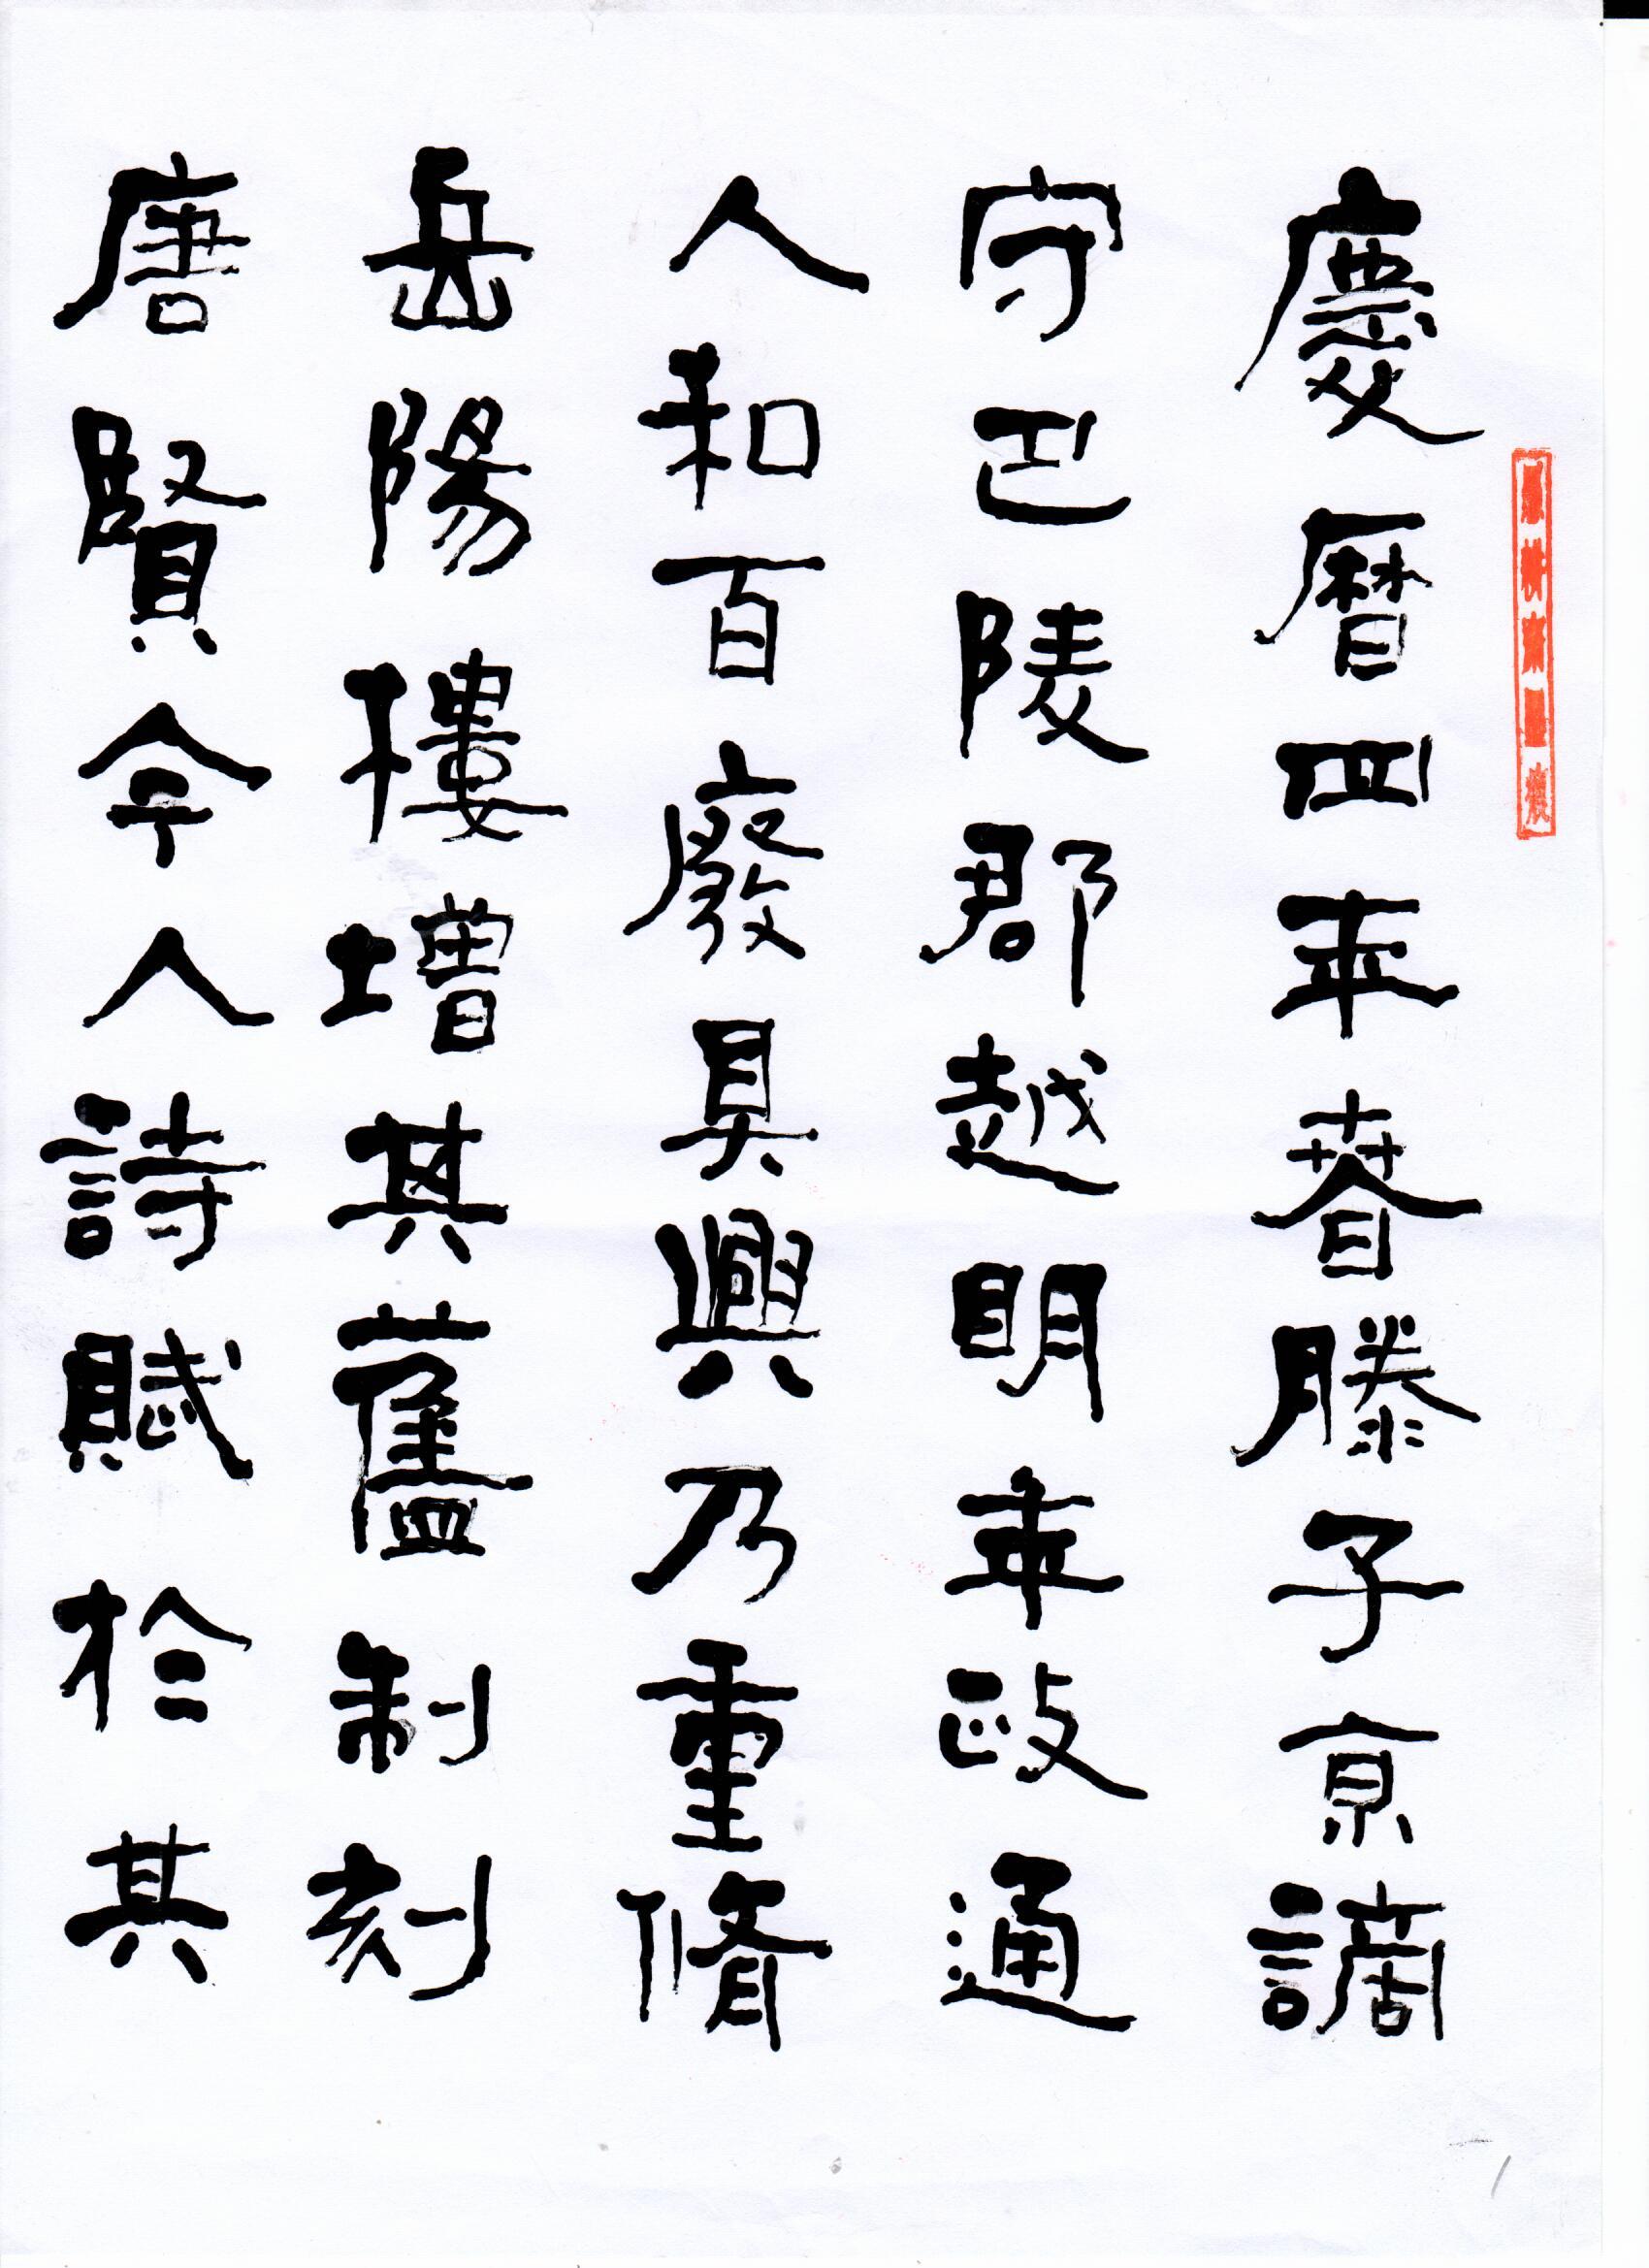 慶曆四年春滕子京謫
守巴陵郡越明年政通
人和百廢具興乃重脩
岳陽樓增其舊制刻
唐賢今人詩賦於其